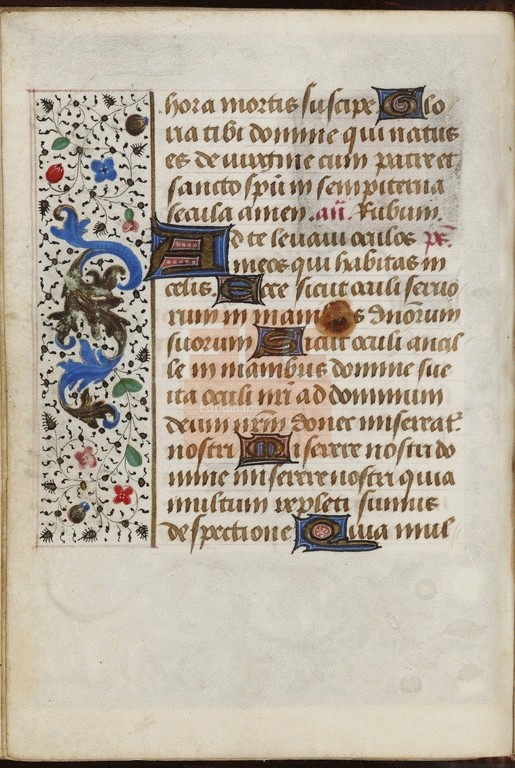 hora mortis suscipe Glo
ria tibi domine qui natus
es de virgine cum patre et
sancto spũ in sempiterna
secula amen. añ. Rubum.
Ad te levavi oculos pš.
meos qui habitas in
celis Ecce sicut oculi servo
rum in manibus dñorum
suorum Sicut oculi ancil
le in manibus domine sue
ita oculi nr̃i ad dominum
deum nr̃m donec misereat̃
nostri Miserere nostri do
mine miserere nostri quia
multum repleti sumus
despectione Quia mul